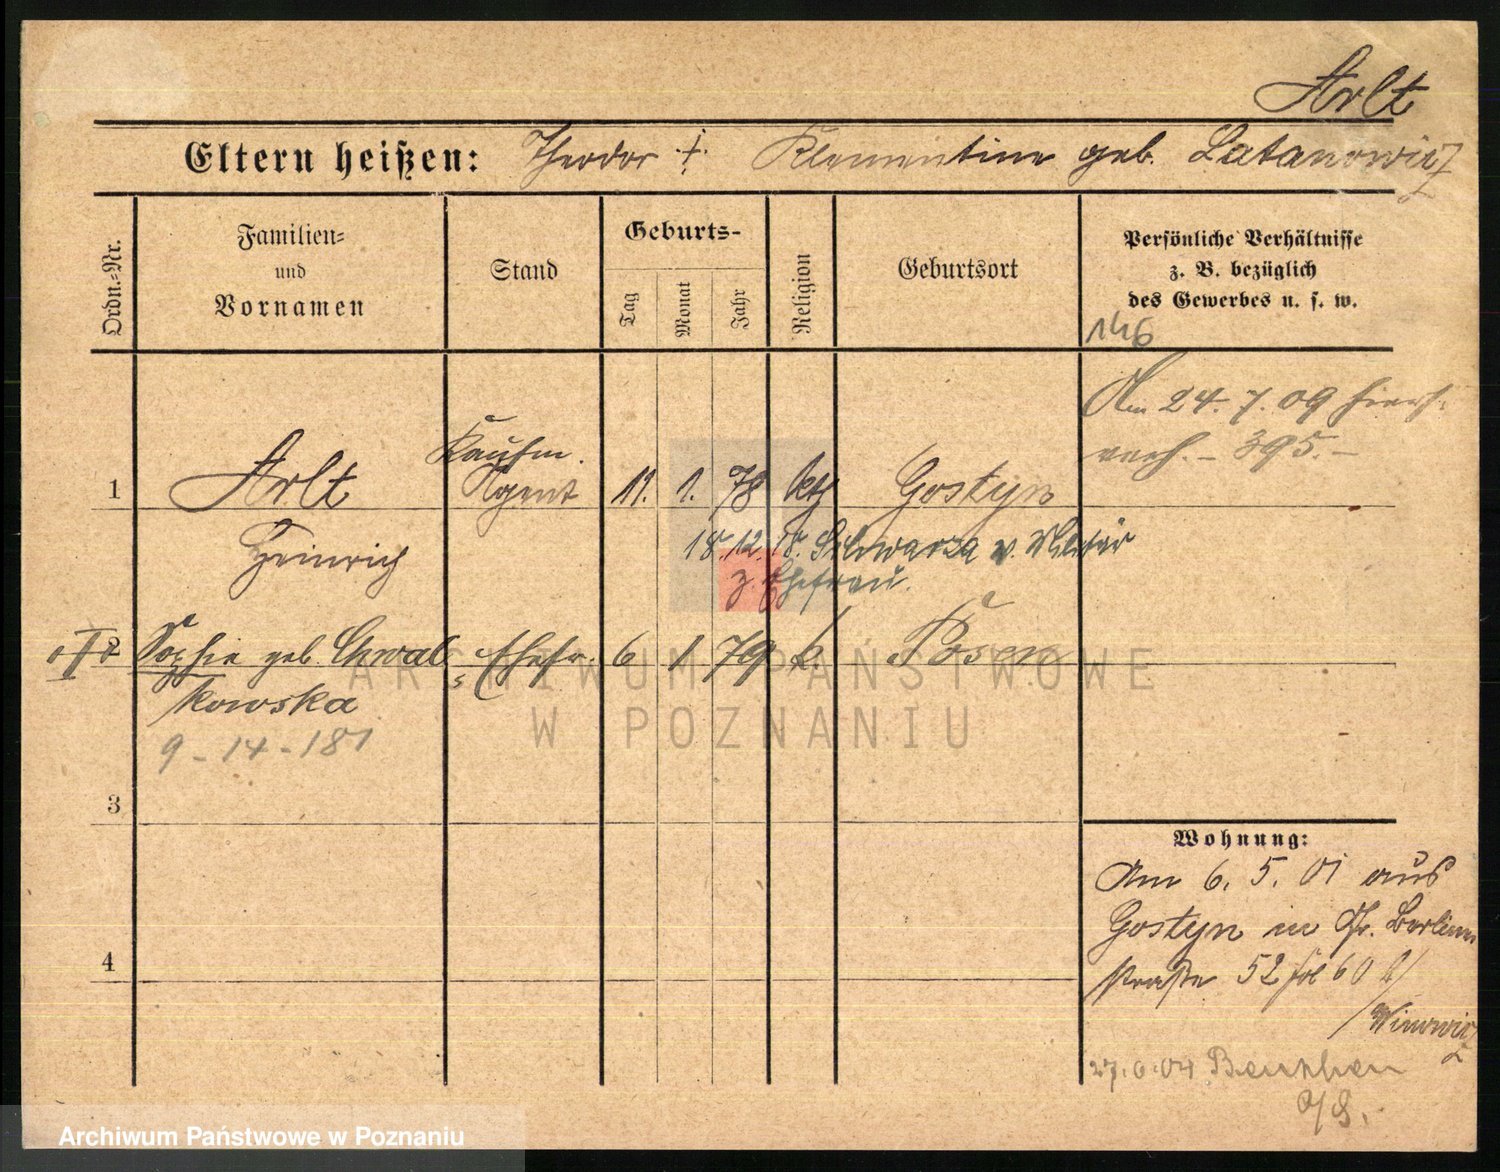 Arlt
Eltern heißen: Theodor †. Klementine geb. Latanowicz
Ordn.-Nr.
Familien-
und
Vornamen
Stand
Geburts-
Tag
Monat
Jahr
Religion
Geburtsort
Persönliche Verhältnisse
z. B. bezüglich
des Gewerbes u. s. w.
146
Am 24. 7. 09
395.-
Kaufm.
1 Arlt Agent 11. 1. 78 kth Gostyn
Heinrich
18. 12. 18. v. Militär
z. Ehefrau.
2 Sophie geb. Chwal Ehefr. 6 1 79 k. Posen
kowska
9 - 14 - 181
3
4
Wohnung:
Am 6. 5. 01 aus
Gostyn in Gr. Berliner
straße 52 60
27. 6. 04 Beuthen
O/S.
ARCHIWUM PAŃSTWOWE
W POZNANIU
Archiwum Państwowe w Poznaniu